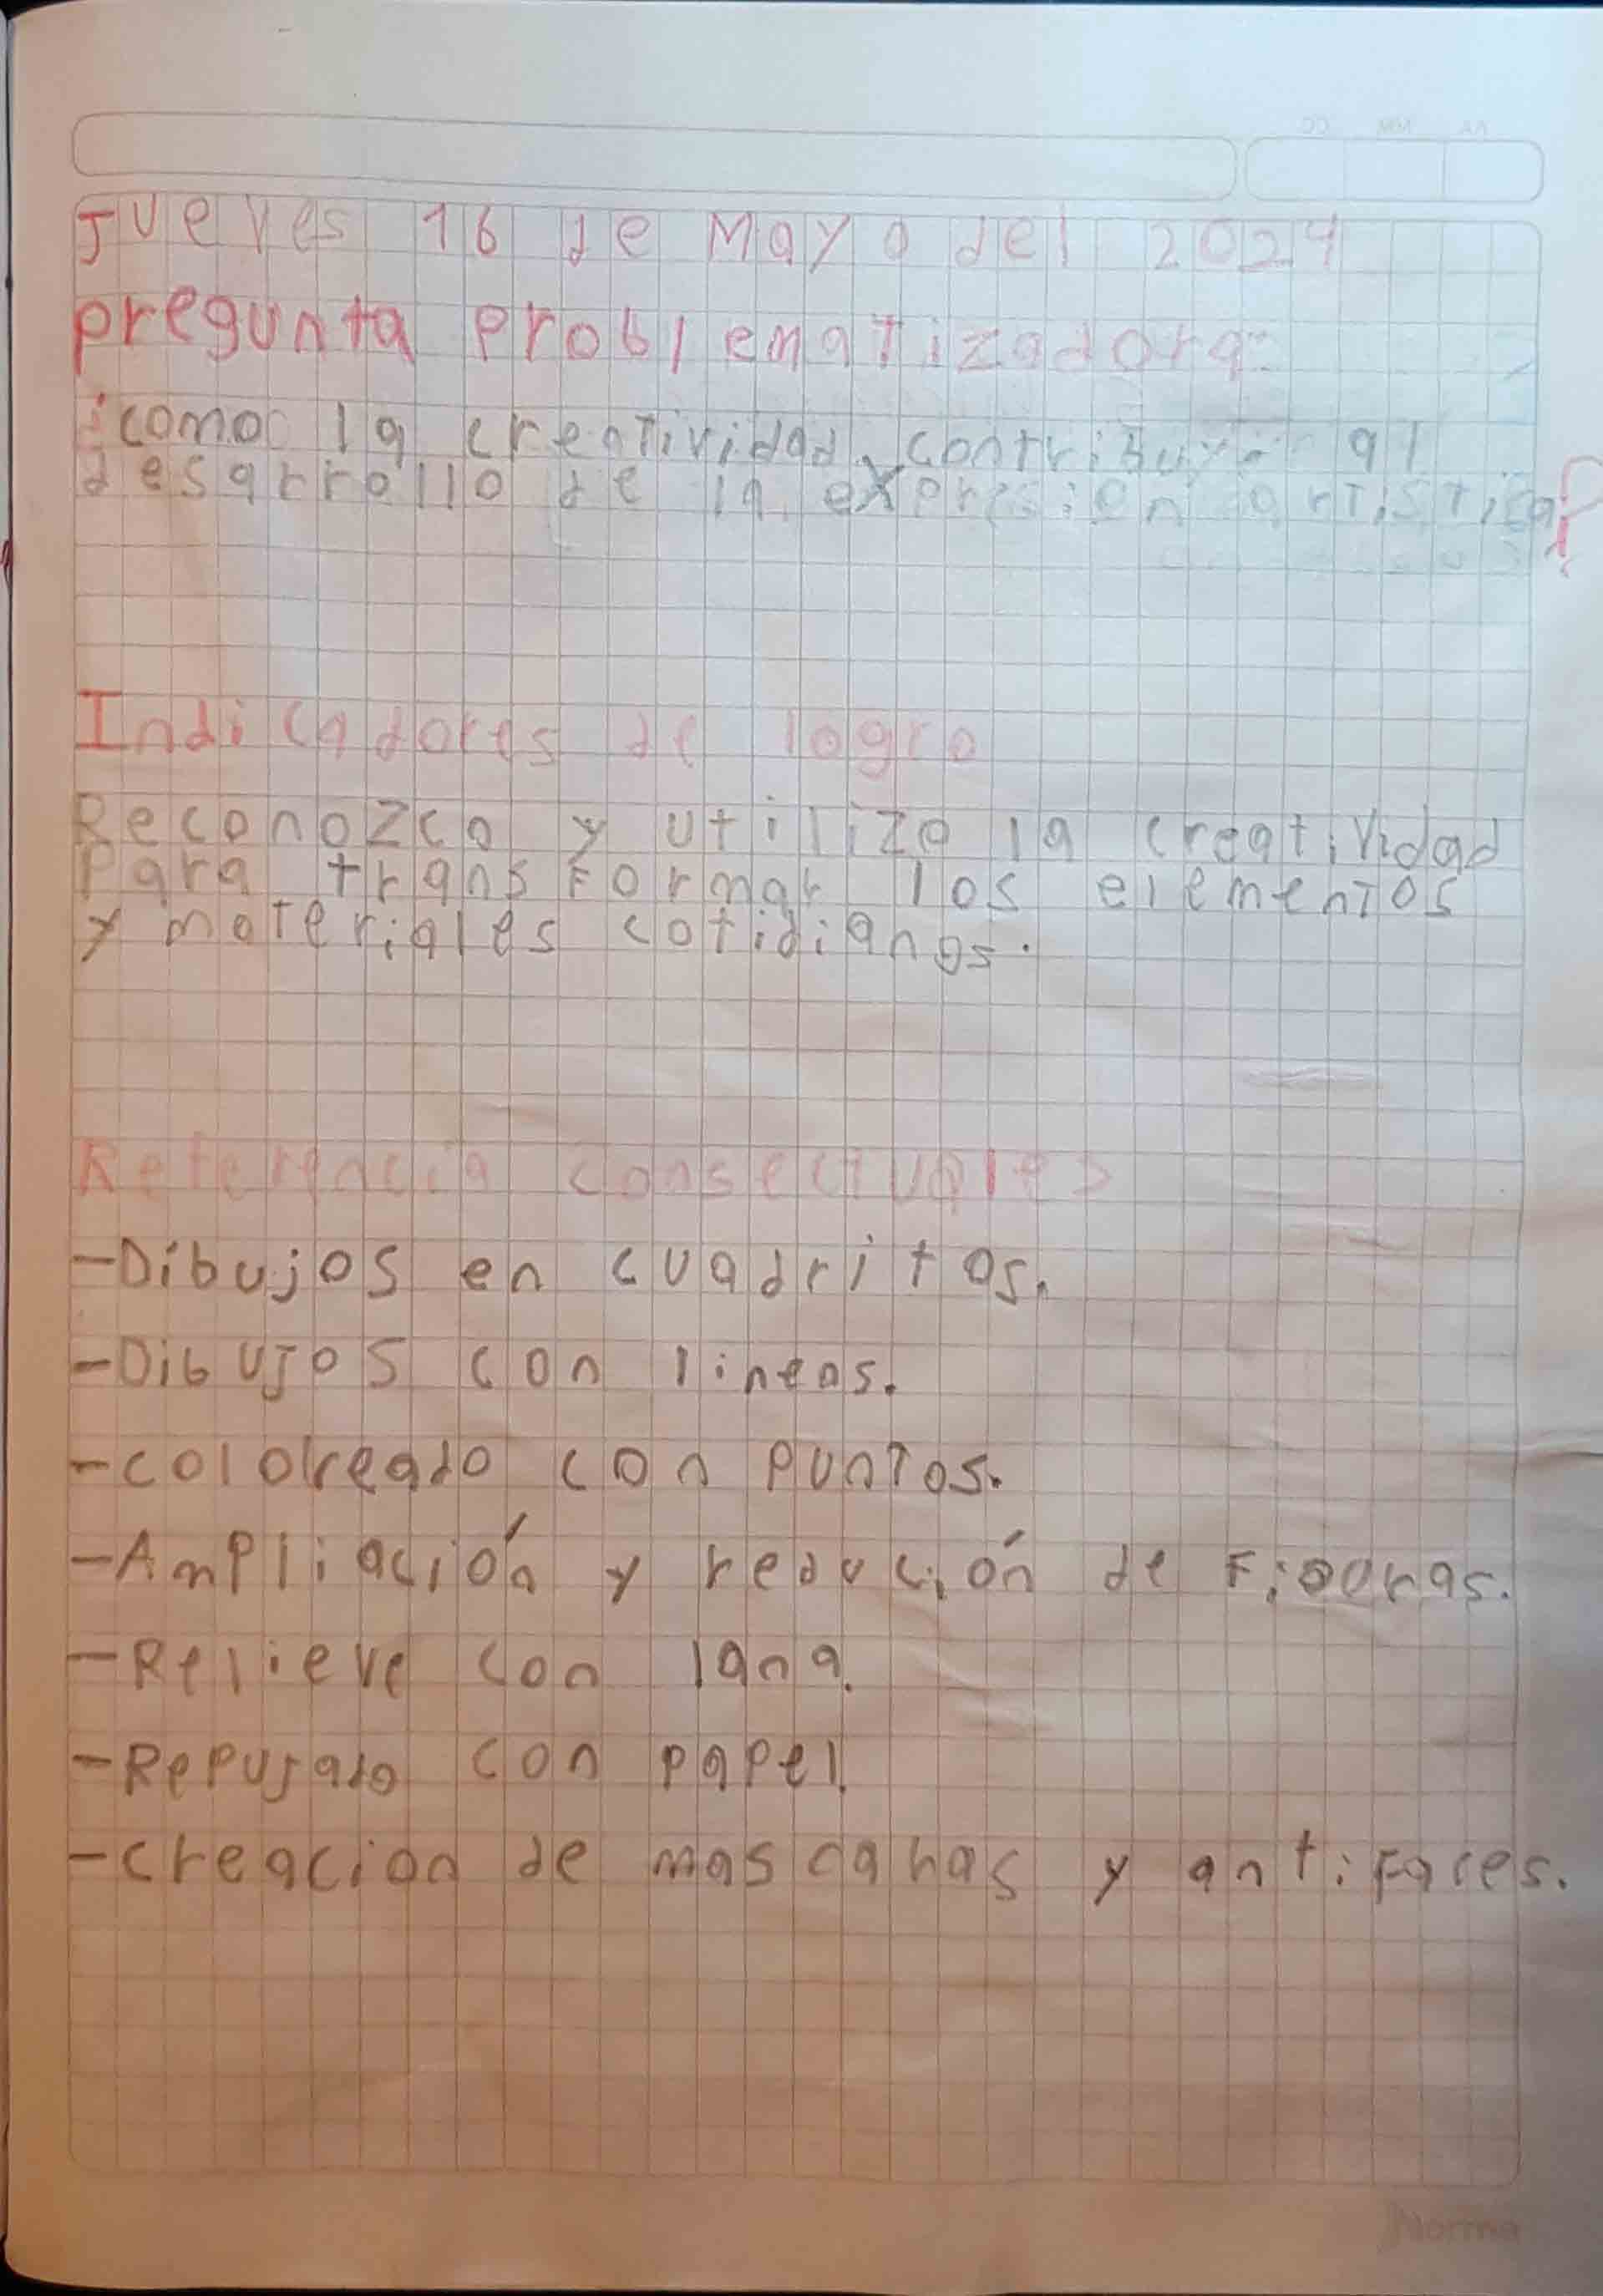 Jueves 16 de Mayo del 2024
pregunta problematizadora:
¿como la creatividad contribuye al
desarrollo de la expresion artistica?
Indicadores de logro
Reconozco y utilizo la creatividad
Para transformar los elementos
y materiales cotidianos.
Referencia consectuales
-Dibujos en cuadritos.
-Dibujos con lineas.
-coloreado con puntos.
-Ampliación y redución de Figuras.
-Relieve con lana.
-Repujado con papel.
-creacion de mascaras y antifaces.
Norma